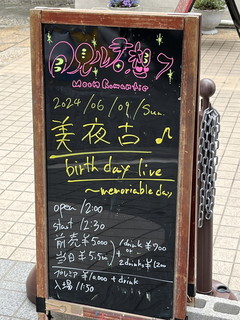 月見ル君想フ
Moon Romantic
2024/06/09/Sun.
美夜古♪
birthday live
～memoriable day
open 12:00
start 12:30
前売¥5,000
当日¥5,500
1drink ¥700
or
2drinks ¥1200
プレミア¥10,000+drink
入場 11:50